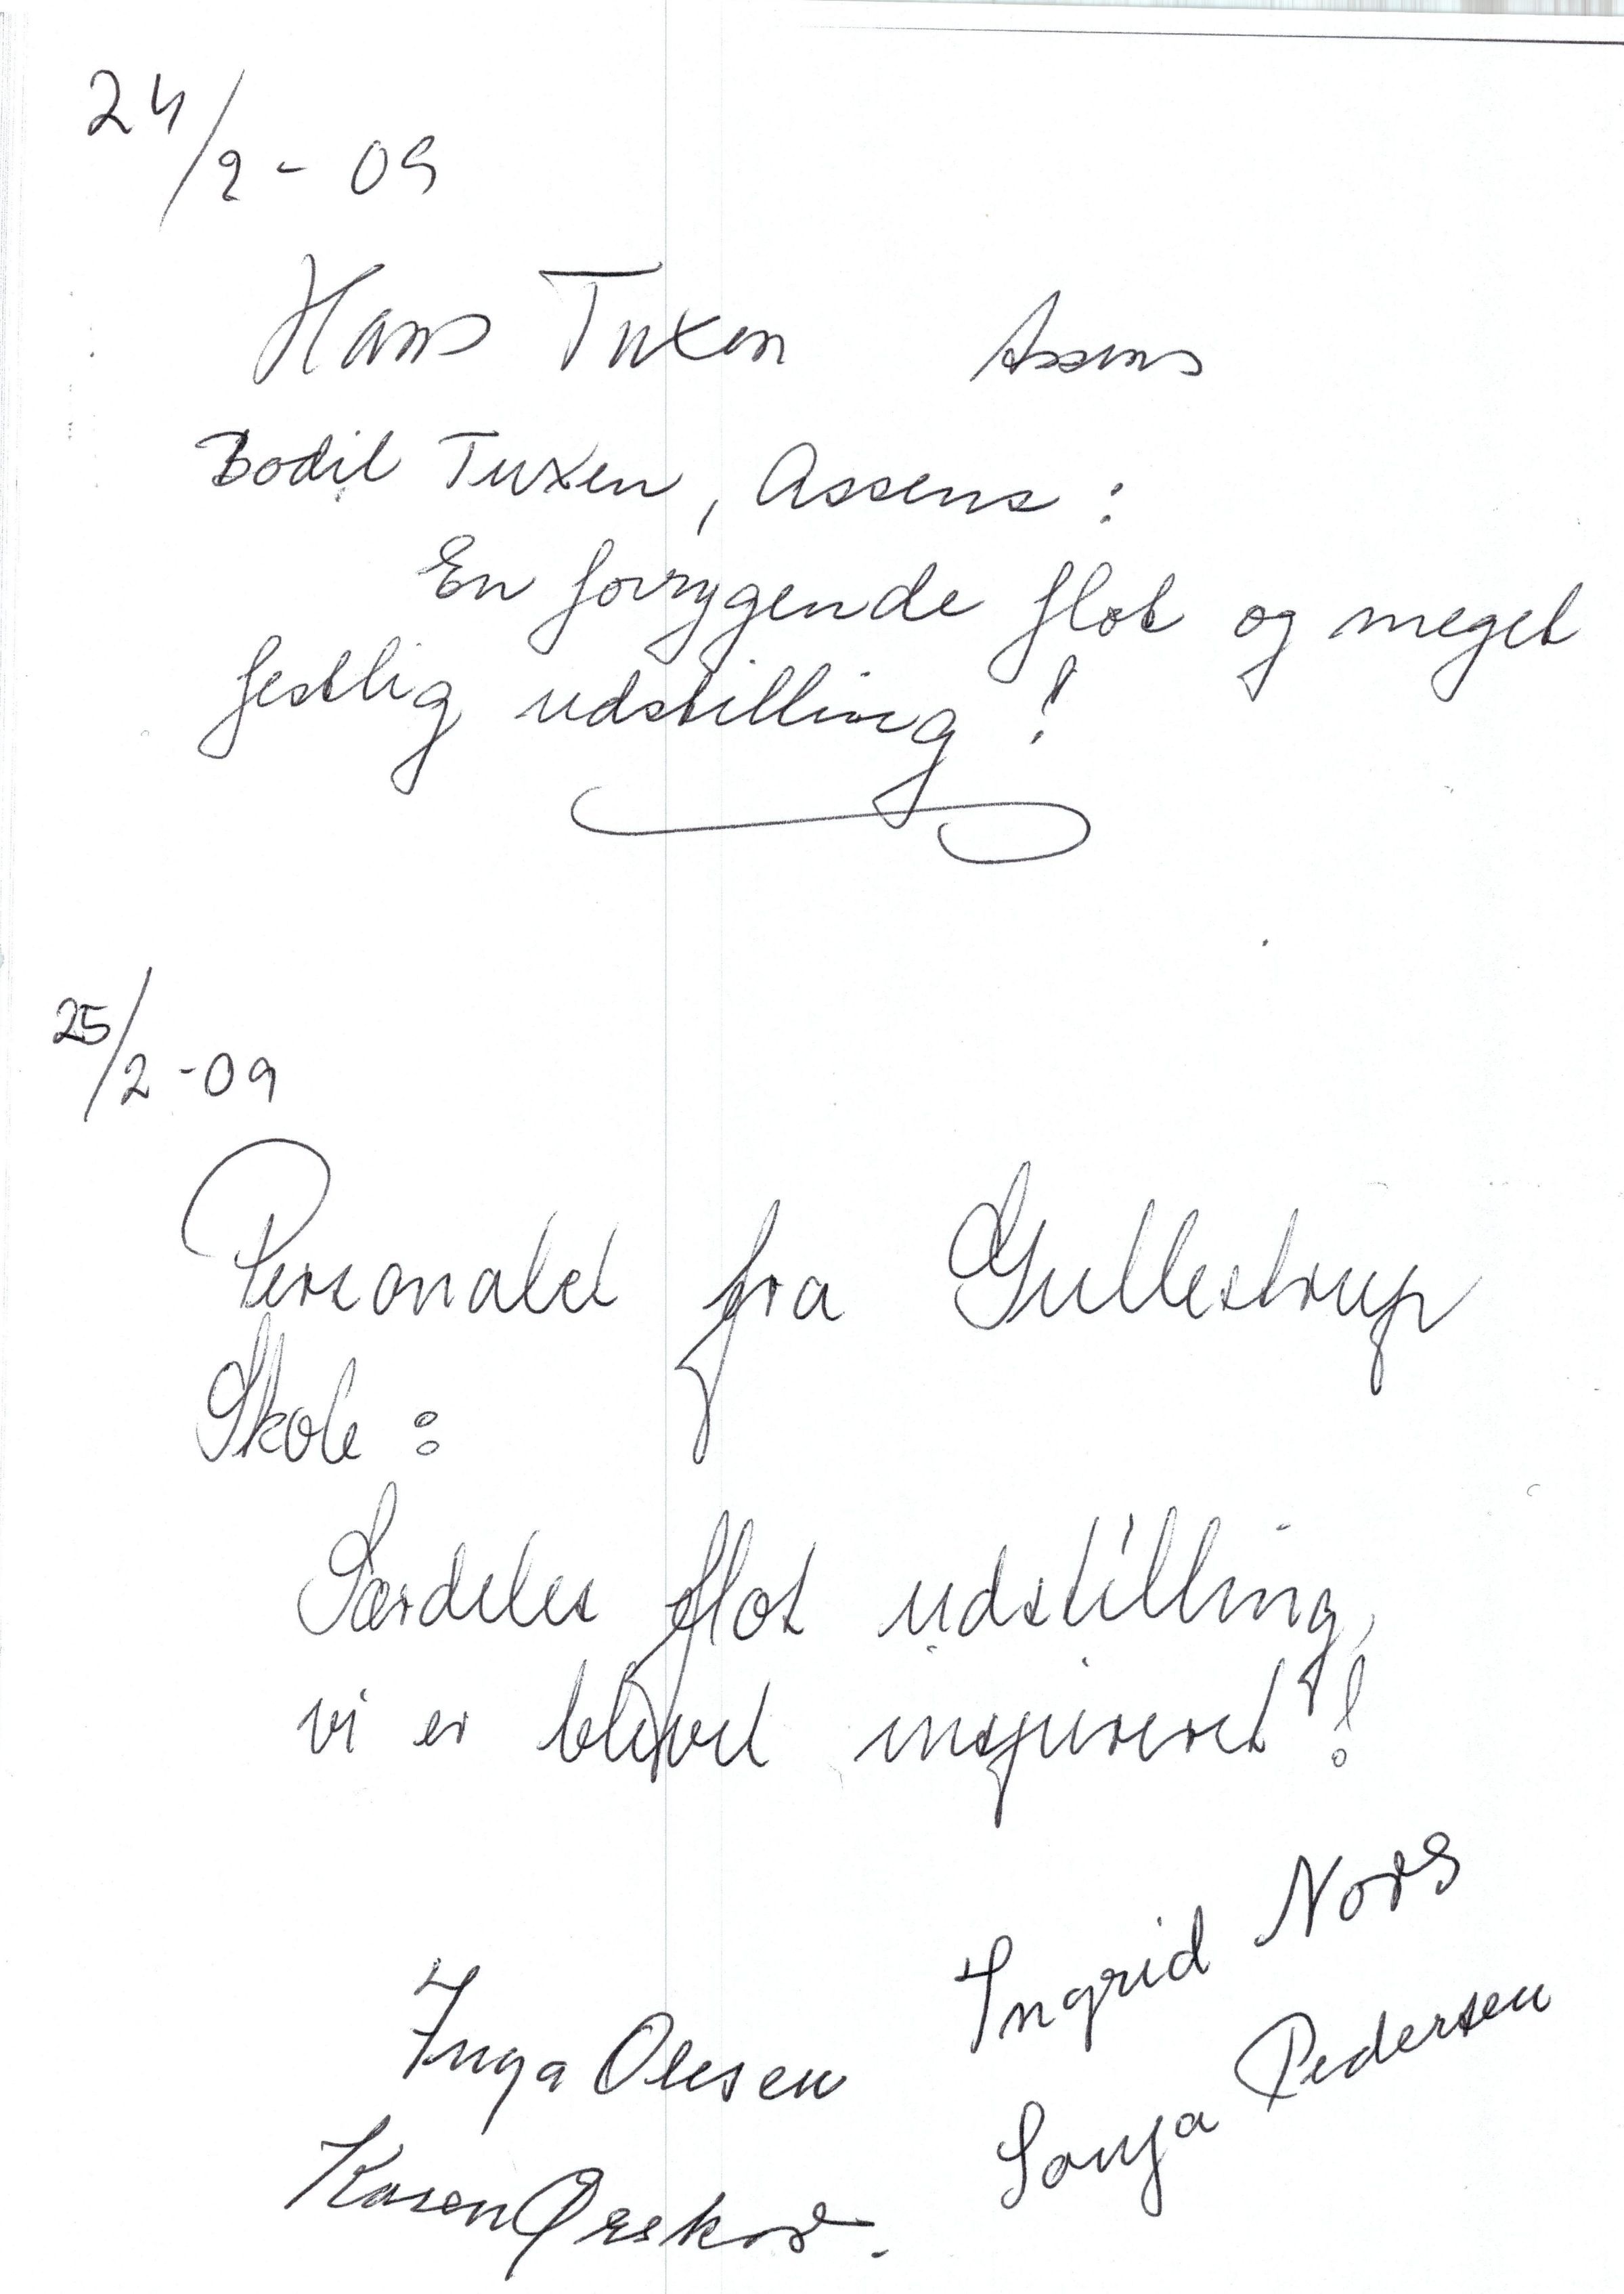 24/2 - 09
Hans Tuxen Assens
Bodil Tuxen, Assens :
En forrygende flot og meget
festlig udstilling !
25/2 - 09
Personalet fra Gullestrup
Skole :
Særdeles flot udstilling,
vi er blevet inspireret !
Ingrid Nors
Inga Olesen
Sonja Pedersen
Karen Ørskov.